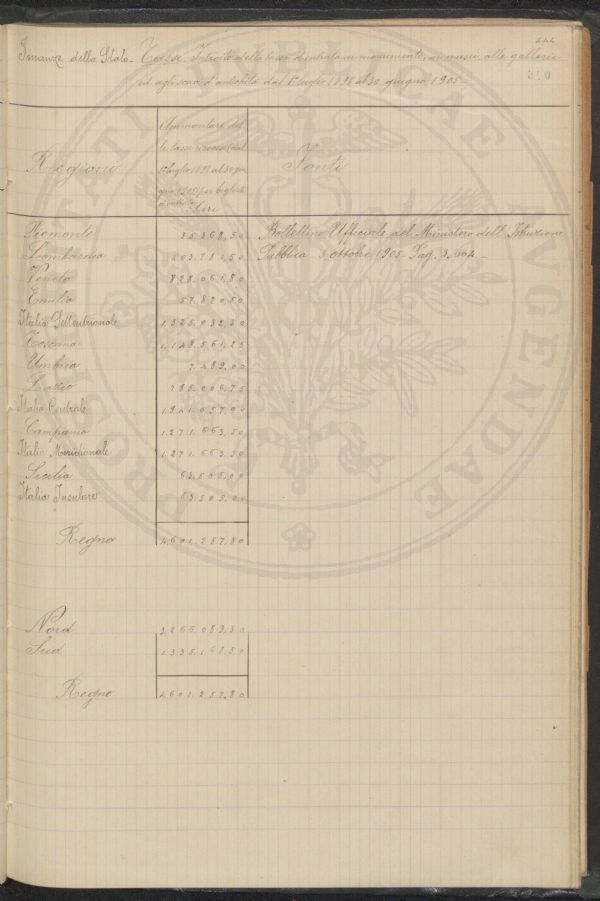 444
Finanze dello Stato - Tasse. Introito della tassa d'entrata ai monumenti, ai musei, alle gallerie
ed agli scavi d'antichità dal 1° luglio 1898 al 30 giugno 1905 -
Regioni
Ammontare del
le tasse riscosse dal
1° luglio 1898 al 30 giu
gno 1905 per biglietti
Lire
Fonti
Piemonte 35.368,50 Bollettino Ufficiale del Ministero dell'Istruzione
Lombardia 403.781,50 Pubblica - 5 ottobre 1905 - Pag. 3,004 -
Veneto 828.061,80
Emilia 57.820,50
Italia Settentrionale 1.325.032,30
Toscana 1.148.561,25
Umbria 7.489,00
Lazio 785.006,75
Italia Centrale 1.941.057,00
Campania 1.271.663,50
Italia Meridionale 1.271.663,50
Sicilia 63.505,00
Italia Insulare 63.505,00
Regno 4.601.257,80
Nord 3.266.089,30
Sud 1.335.168,50
Regno 4.601.257,80